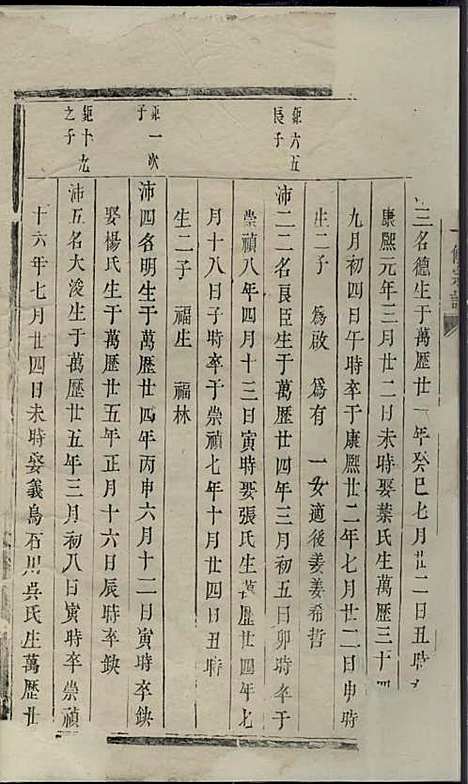 三名德生于萬歷廿一年癸巳七月廿二日丑時
康熙元年三月廿二日未時娶葉氏生萬歷三十四
九月初四日午時卒于康熙廿二年七月廿二日申時
生二子 為啟 為有 一女適後姜姜希哲
鉅六五長子
沛二二名長臣生于萬歷廿四年三月初五日卯時卒于
崇禎八年四月十三日寅時娶張氏生萬歷廿四年七
月十八日子時卒于崇禎七年十月廿四日丑時
生二子 福生 福林
鉅一次子
沛四名明生于萬歷廿四年丙申六月十二日寅時卒缺
娶楊氏生于萬歷廿五年正月十六日辰時卒缺
鉅十九之子
沛五名大浚生于萬歷廿五年三月初八日寅時卒崇禎
十六年七月廿四日未時娶義烏石川吳氏生萬歷廿